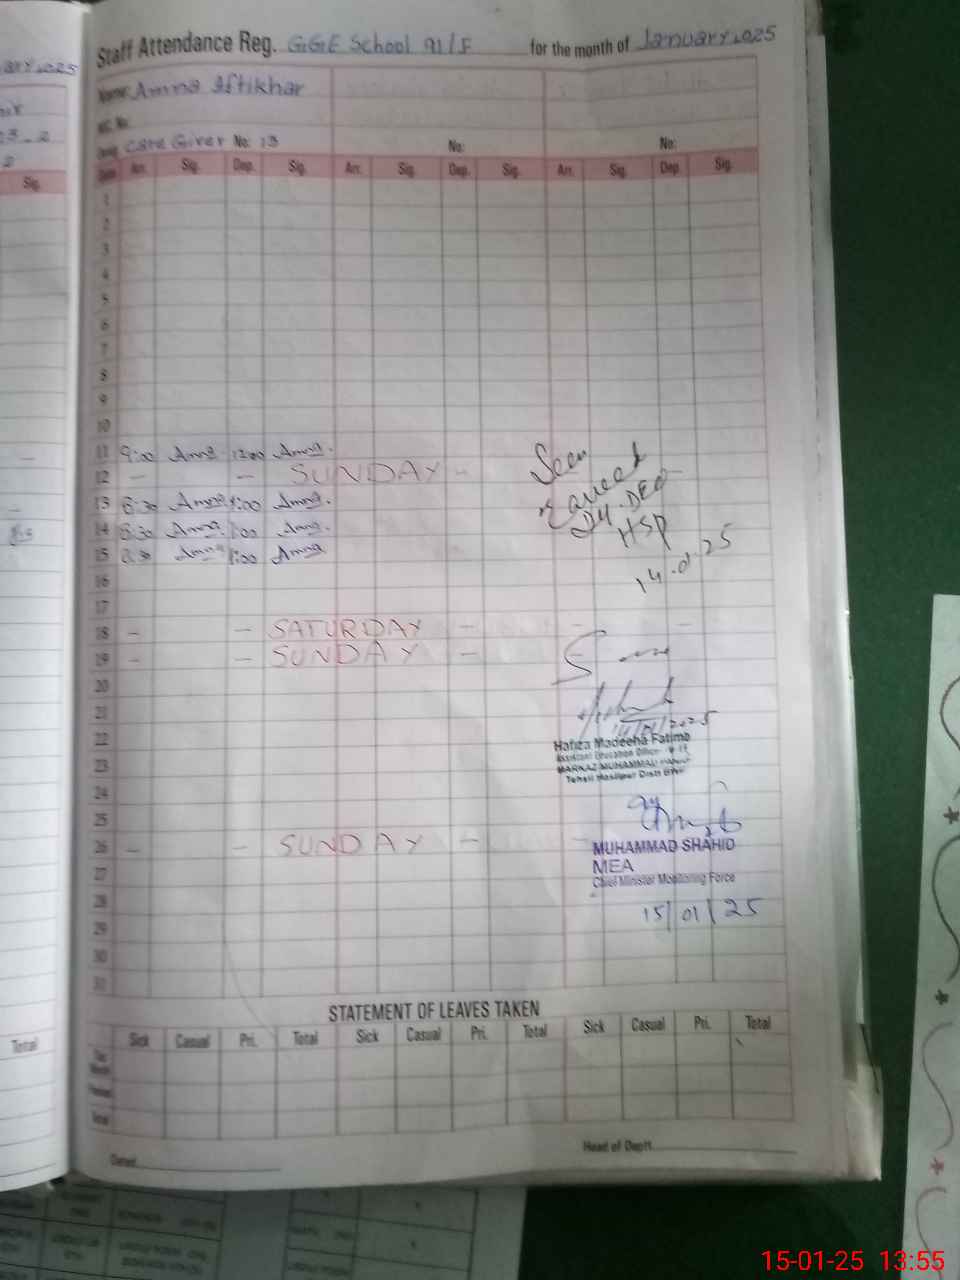 Staff Attendance Reg. GGE School 91/F for the month of January 2025
Name: Amna Iftikhar
Care Giver No: 13 No: No:
Date Arr. Sig. Dep. Sig. Arr. Sig. Dep. Sig. Arr. Sig. Dep. Sig.
1
2
3
4
5
6
7
8
9
10
11 9:00 Amna 12:00 Amna.
12 - - SUNDAY -
13 8:30 Amna 1:00 Amna.
14 8:30 Amna. 1:00 Amna.
15 8:30 Amna 1:00 Amna
16
17
18 - - SATURDAY - - -
19 - - SUNDAY - -
20
21
22
23
24
25
26 - - SUNDAY - -
27
28
29
30
31
Seen
Dy. DEO
HSP
14.01.25
14/01/2025
Hafiza Madeeha Fatima
Assistant Education Officer
MARKAZ MUHAMMAD
Tehsil Hasilpur Distt BWP
MUHAMMAD SHAHID
MEA
Chief Minister Monitoring Force
15/01/25
STATEMENT OF LEAVES TAKEN
Sick Casual Pri. Total Sick Casual Pri. Total Sick Casual Pri. Total
Total
Dated
Head of Deptt.
Sig.
Total
15-01-25 13:55